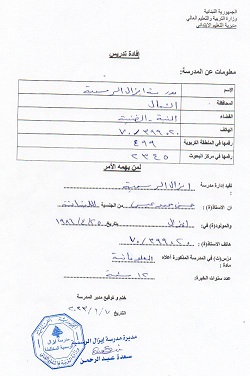 الجمهورية اللبنانية
وزارة التربية والتعليم العالي
مديرية التعليم الابتدائي
إفادة تدريس
معلومات عن المدرسة:
الإسم مدرسة ايزال الرسمية
المحافظة الشمال
القضاء
الهاتف
رقمها في المنطقة التربوية ٤٩٩
رقمها في مركز البحوث ٢٣٤٥
لمن يهمه الأمر
تفيد إدارة مدرسة ايزال الرسمية
ان الاستاذ(ة): من الجنسية اللبنانية
والمولود(ة) في بتاريخ
هاتف الاستاذ(ة):
درّس(ت) في المدرسة المذكورة أعلاه
مادة : المعلوماتية
عدد سنوات الخبرة: ١٢ سنة
ختم و توقيع مدير المدرسة
التاريخ
مديرة مدرسة إيزال الرسمية
سعدة عبد الرحمن